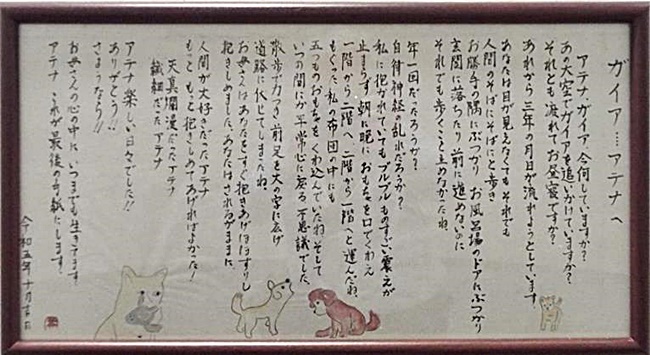 ガイア…アテナへ
アテナ、ガイア、今何していますか？
あの大空でガイアを追いかけていますか？
それとも疲れてお昼寝ですか？
あれから三年の月日が流れようとしています
あなたは目が見えなくてもそれでも
人間のそばにそばにと歩き
お勝手の隅にぶつかり お風呂場のドアにぶつかり
玄関に落ちたり 前に進めないのに
それでも歩くことを止めなかったね。
年一回だったろうか？
自律神経の乱れだろうか？
私に抱かれていてもブルブルものすごい震えが
止まらず 朝に晩に おもちゃを口でくわえ
一階から二階へ 二階から一階へと運んだね。
もぐった私の布団の中にも
五つものおもちゃをくわえ込んでいたね。そして
いつの間にか平常心に戻る 不思議でした。
散歩で力つき 前足を大の字に広げ
道路に伏せてしまったね
お母さんはあなたをすぐ抱きあげほほずりし
抱きしめました。あなたはされるがままに
人間が大好きだったアテナ
もっともっと抱きしめてあげればよかった！
天真爛漫だったアテナ
繊細だったアテナ
アテナ 楽しい日々でした!!
ありがとう!!
さようなら!!
お母さんの心の中に いつまでも生きてます
アテナ これが最後の手紙にします。
令和五年十月 日